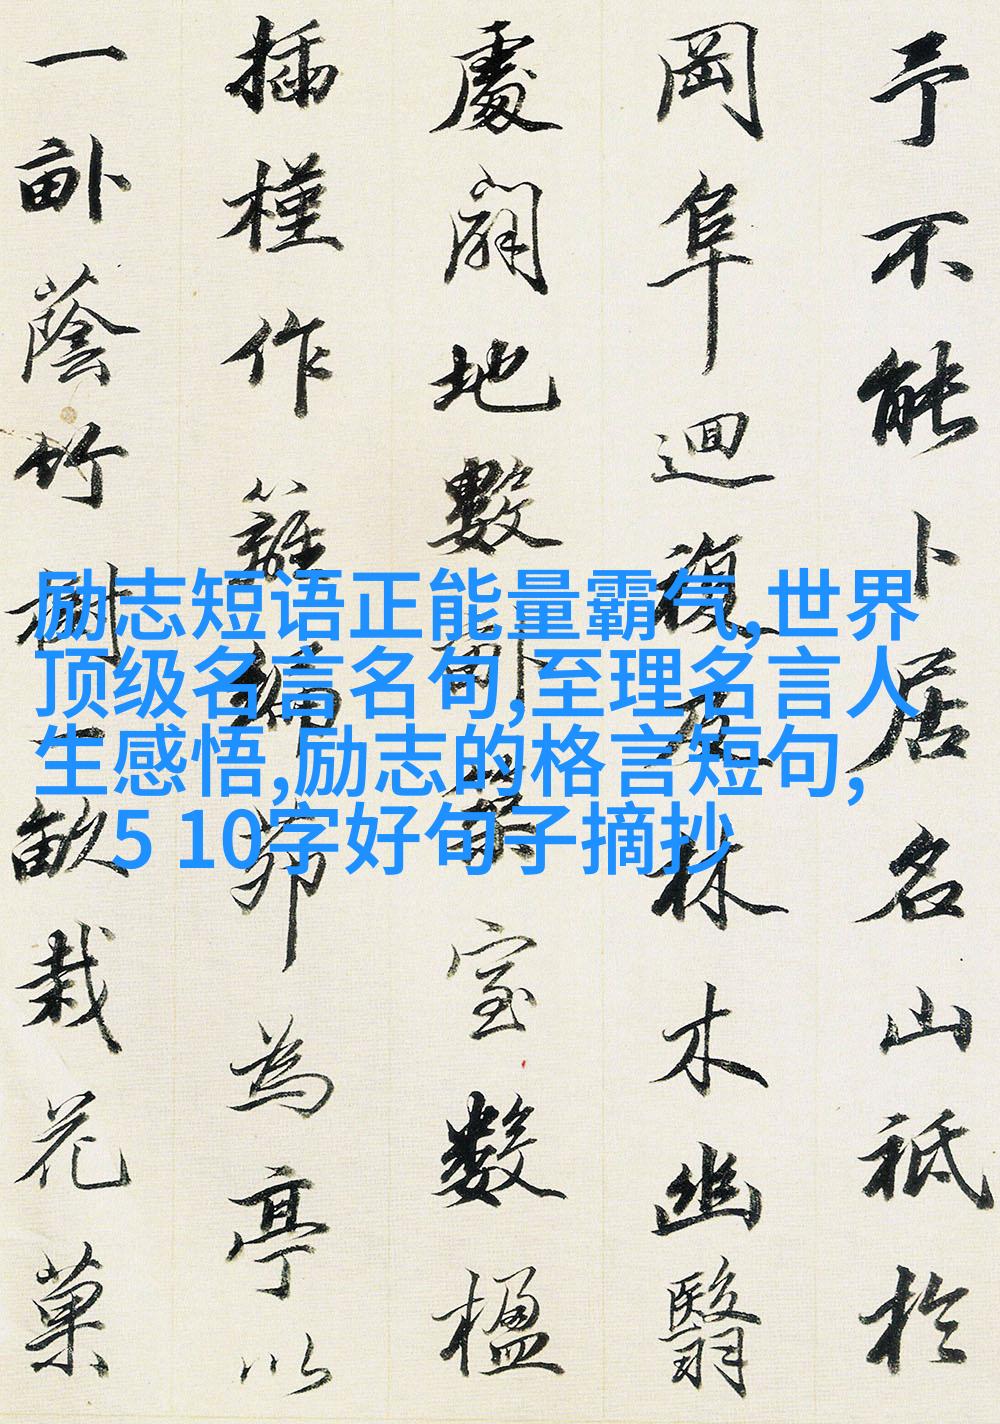 予不能卜居名山祗於
岡阜迴複及林木幽翳
處闢地數畝築室數楹
插槿作籬編茆為亭以
一畝蔭竹樹一畝栽花菓
励志短语正能量霸气,世界
顶级名言名句,至理名言人
生感悟,励志的格言短句,
5 10字好句子摘抄